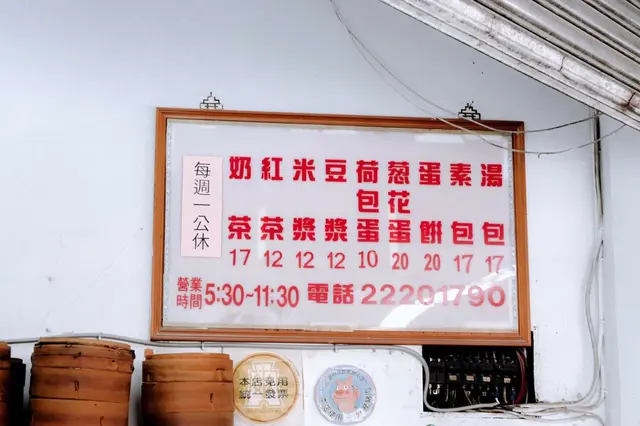 湯包 17
素包 17
蛋餅 20
葱花蛋 20
荷包蛋 10
豆漿 12
米漿 12
紅茶 12
奶茶 17
每週一公休
營業時間 5:30~11:30 電話 22201790
本店免用
統一發票